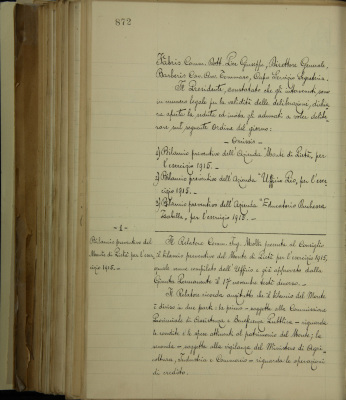 872
Fabris Comm. Dott. Giuseppe, Direttore Generale,
Barberio Cav. Avv. Tommaso, Capo Servizio Segreteria.
Il Presidente, constatato che gli intervenuti sono
in numero legale per la validità delle deliberazioni, dichia
ra aperta la seduta ed invita gli adunati a voler delibe
rare sul seguente Ordine del giorno:
- Omissis -
1) Bilancio preventivo dell'Azienda "Monte di Pietà", per
l'esercizio 1915. -
2) Bilancio preventivo dell'Azienda "Ufficio Pio, per l'eser
cizio 1915. -
3) Bilancio preventivo dell'Azienda "Educatorio Duchessa
Isabella, per l'esercizio 1915. -
- 1 -
Bilancio preventivo del
Monte di Pietà per l'eser
cizio 1915. -
Il Relatore Comm. Ing. presenta al Consiglio
il bilancio preventivo del Monte di Pietà per l'esercizio 1915,
quale venne compilato dall'Ufficio e già approvato dalla
Giunta Permanente il 17 novembre testè decorso. -
Il Relatore ricorda anzitutto che il bilancio del Monte
è diviso in due parti: la prima - soggetta alla Commissione
Provinciale di Assistenza e Beneficenza Pubblica - riguarda
le rendite e le spese attinenti al patrimonio del Monte; la
seconda - soggetta alla vigilanza del Ministero di Agri-
coltura, Industria e Commercio - riguarda le operazioni
di credito. -